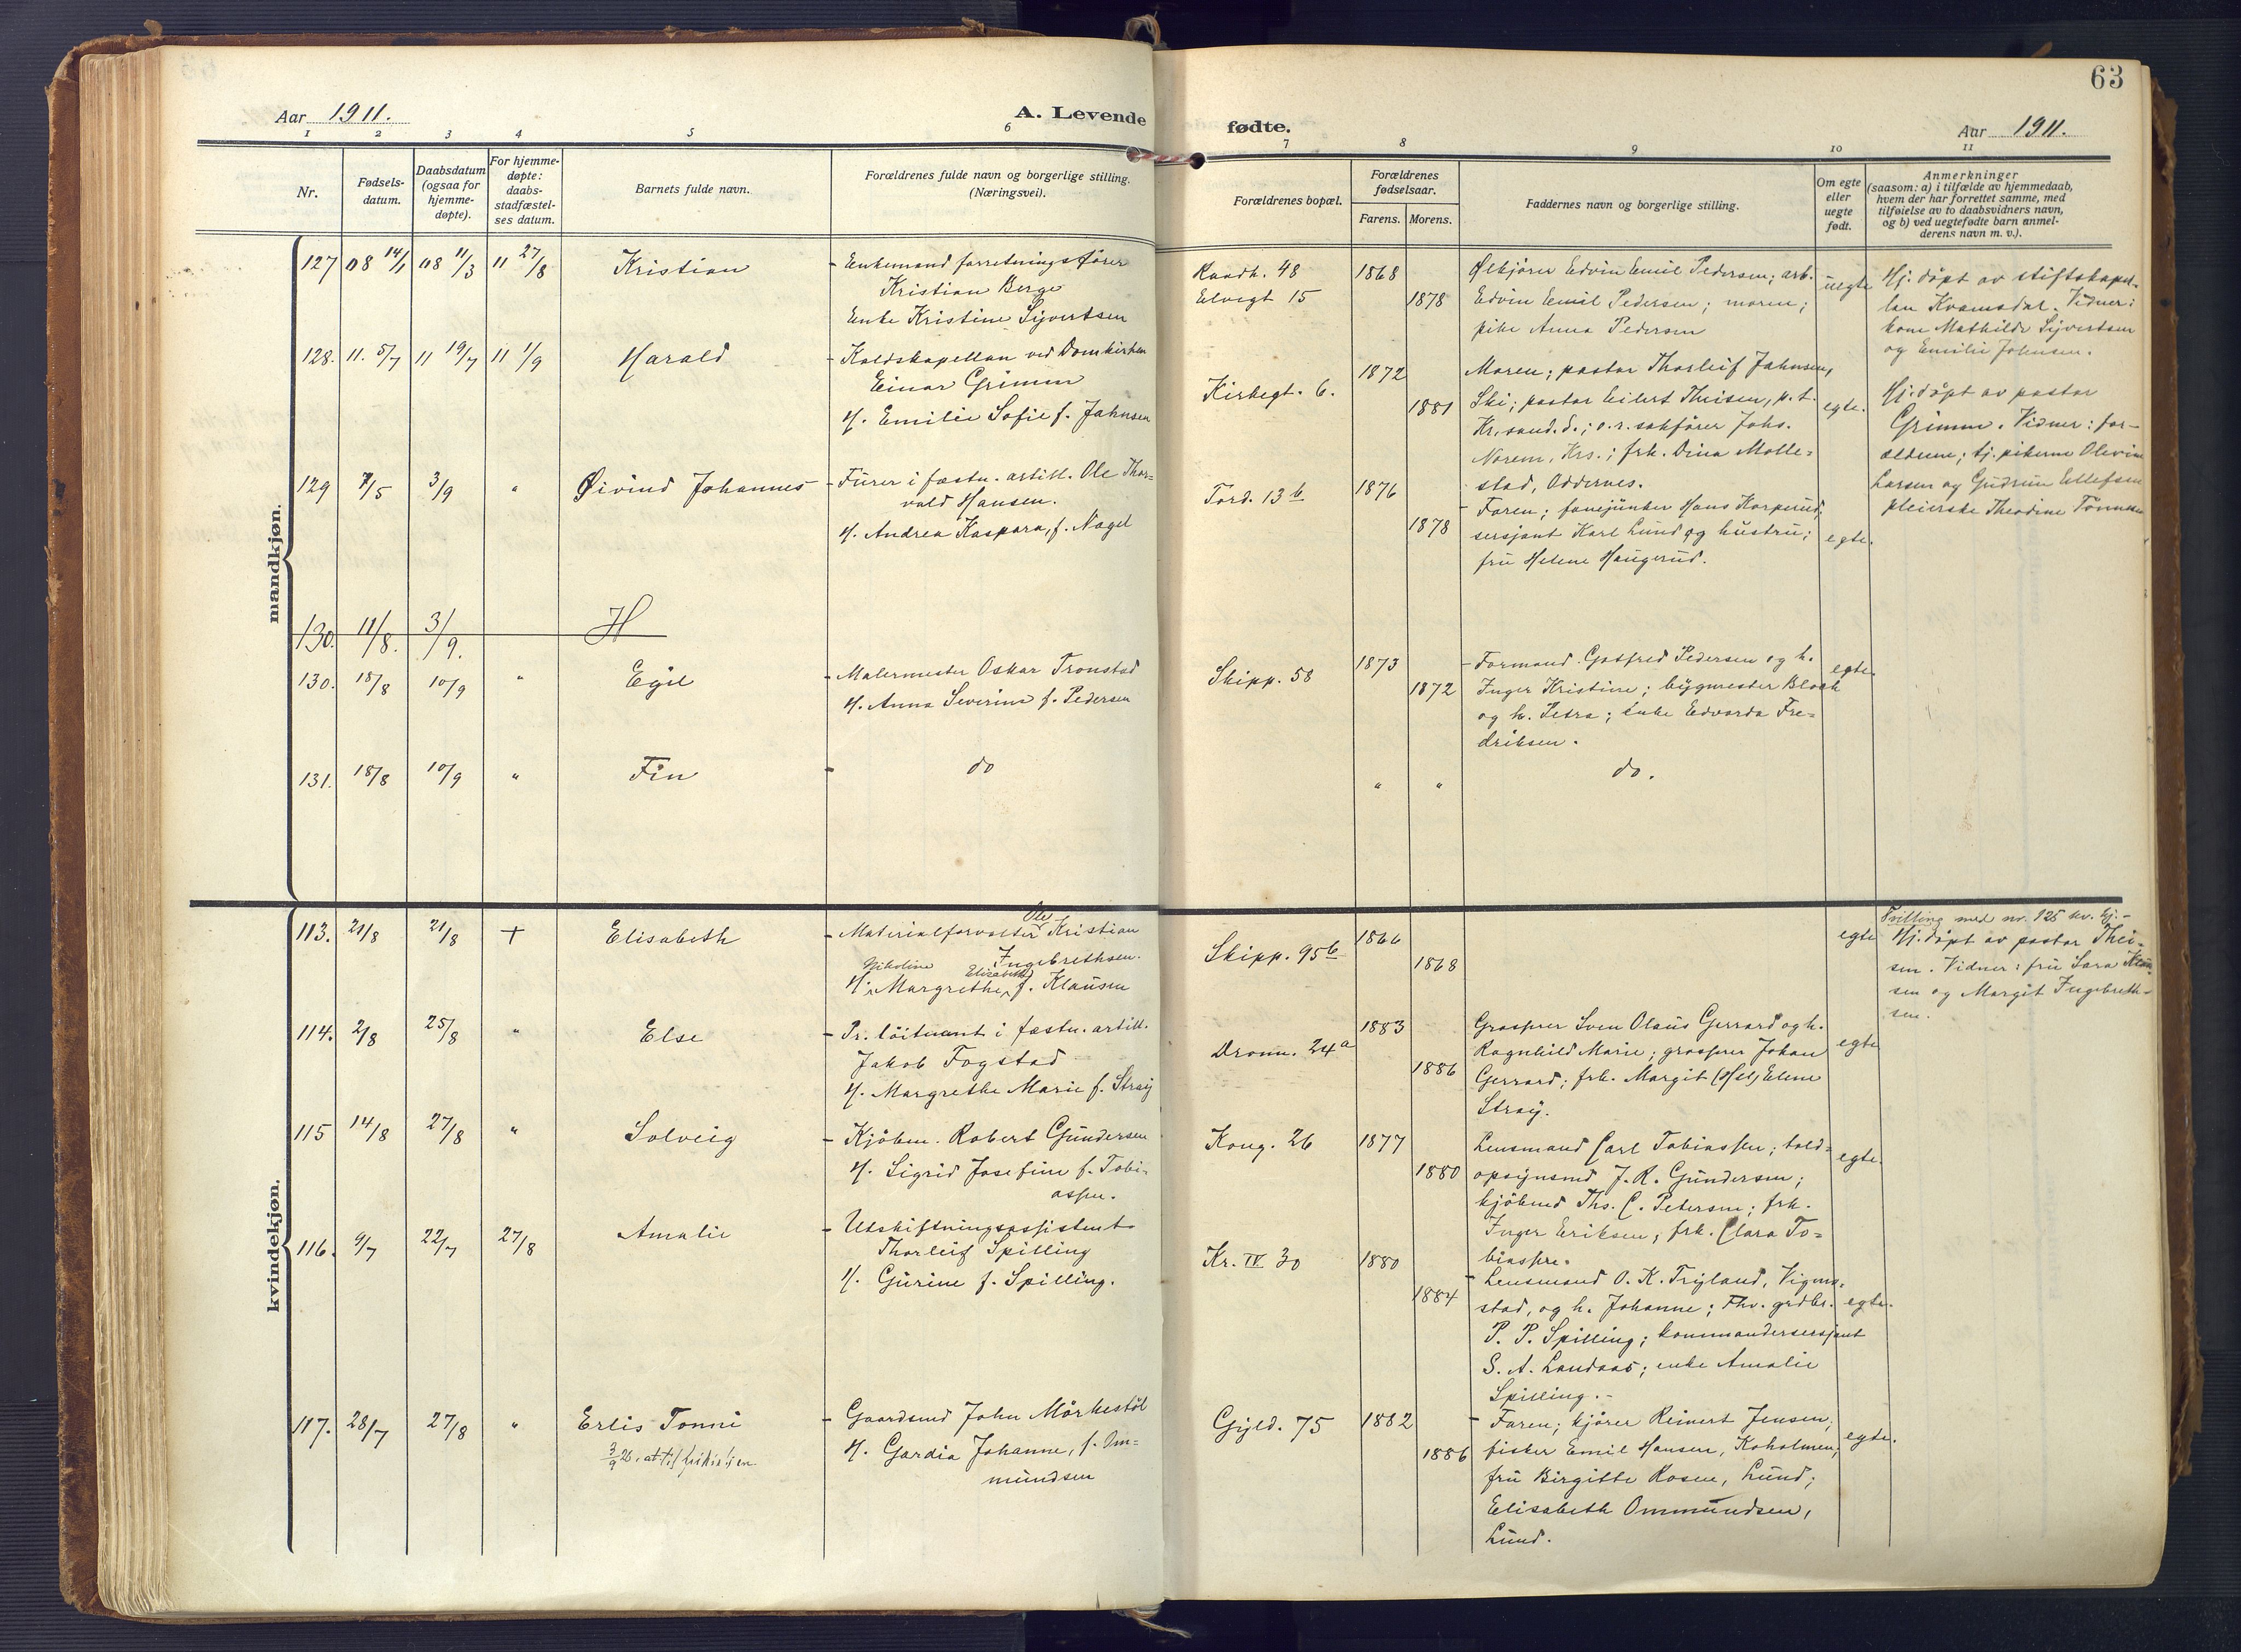 63
Aar 1911.
A. Levende
fødte.
Aar 1911.
1 2 3 4 5 6 7 8 9 10 11
Nr.
Fødsels-
datum.
Daabsdatum
(ogsaa for
hjemme-
døpte).
For hjemme-
døpte:
daabs-
stadfæstel-
ses datum.
Barnets fulde navn.
Forældrenes fulde navn og borgerlige stilling.
(Næringsvei).
Forældrenes bopæl.
Forældrenes
fødselsaar.
Farens. Morens.
Faddernes navn og borgerlige stilling.
Om egte
eller
uegte
født.
Anmerkninger
(saasom: a) i tilfælde av hjemmedaab,
hvem der har forrettet samme, med
tilføielse av to daabsvidners navn,
og b) ved uegtefødte barn anmel-
derens navn m. v.).
mandkjøn.
127 08 14/1 08 11/3 11 27/8 Kristian
- Enkemand forretningsfører
Kristian Berge
Enke Kristine Sijvertsen
Raadh. 48
Elvegt 15
1868
1878
Ølkjører Edvin Emil Pedersen; arb.
Edvin Emil Pedersen; moren;
pike Anna Pedersen
uegte
Hj. døpt av stiftskapel-
lan Kvamsdal. Vidner:
kone Mathilde Sijvertsen
og Emilie Johnsen.
128. 11. 5/7 11 19/7 11 1/9 Harald
- Kaldskapellan ved Domkirken
Einar Grimm
H. Emilie Sofie f. Jahnsen
Kirkegt. 6.
1872
1881
Moren; pastor Thorleif Jahnsen,
Ski; pastor Eilert Theisen, p. t.
Kr.sand. S.; o.r. sakfører Johs.
Norem, Krs.; frk. Dina Molle-
stad, Oddernes.
egte.
Hj. døpt av pastor
Grimm. Vidner: for-
ældrene; tj. pikerne Olevine
Larsen og Gudrun Ellefsen
pleierske Theodine Tønnesen
129 7/5 3/9 " Øivind Johannes
- Furer i fæstn. artill. Ole Thor-
vald Hansen.
H. Andrea Kaspara, f. Nagel
Tord. 13 b
1876
1878
- Faren; fanejunker Hans Korperud;
sersjant Karl Lund og hustru;
fru Helene Haugerud.
egte.
130. 11/8. 3/9. H
130. 18/8 10/9 " Egil
- Malermester Oskar Tronstad
H. Anna Severine f. Pedersen
Skipp. 58
1873
1872
- Formand Gotfred Pedersen og h.
Inger Kristine; bygmester Block
og h. Petra; enke Edvarda Fre-
driksen.
egte
131. 18/8 10/9 " Fin
- do
" "
do.
kvindekjøn.
113. 21/8 21/8 + Elisabeth
- Materialforvalter Ole Kristian
Ingebrethsen.
H. Nikoline Margrethe Elisabeth f. Klausen
Skipp. 95 b
1866
1868
egte
Tvilling med nr. 125 kv. kj.-
Hj. døpt av pastor Thei-
sen. Vidner: fru Sara Klau-
sen og Margit Ingebreth-
sen.
114. 2/8 25/8 " Else
- Pr. löitnant i fæstn. artill.
Jakob Fogstad
H. Margrethe Marie f. Stray
Dronn. 24 a
1883
1886
Grosserer Sven Olaus Gerrard og h.
Ragnhild Marie; grosserer Johan
Gerrard; frk. Margit (Hel) Elene
Stray.
egte
115 14/8 27/8 " Solveig
- Kjöbm. Robert Gundersen
H. Sigrid Josefine f. Tobi-
assen.
Kong. 26
1877
1880
Lensmand Carl Tobiassen; told-
opsynsmd J. R. Gundersen;
kjöbmd Ths. C. Petersen; frk.
Inger Eriksen; frk. Clara To-
biassen.
egte.
116. 9/7 22/7 27/8 Amalie
- Utskiftningsassistent
Thorleif Spilling
H. Gurine f. Spilling.
Kr. IV 30
1880
1884
- Lensmand O. K. Trygland, Vigmo-
stad, og h. Johanne; Fhv. grdbr.
P. P. Spilling; kommandersersjant
S. A. Landaas; enke Amalie
Spilling.-
egte.
117. 28/7 27/8 " Erlis Tonni
3/9 26. att til
- Gaardsmd John Mörkestöl
H. Gardia Johanne, f. Om-
mundsen
Gyld. 75
1882
1886
- Faren; kjører Reinert Jensen;
fisker Emil Hansen, Koholmen;
fru Birgitte Rosen, Lund;
Elisabeth Ommundsen,
Lund.
egte.